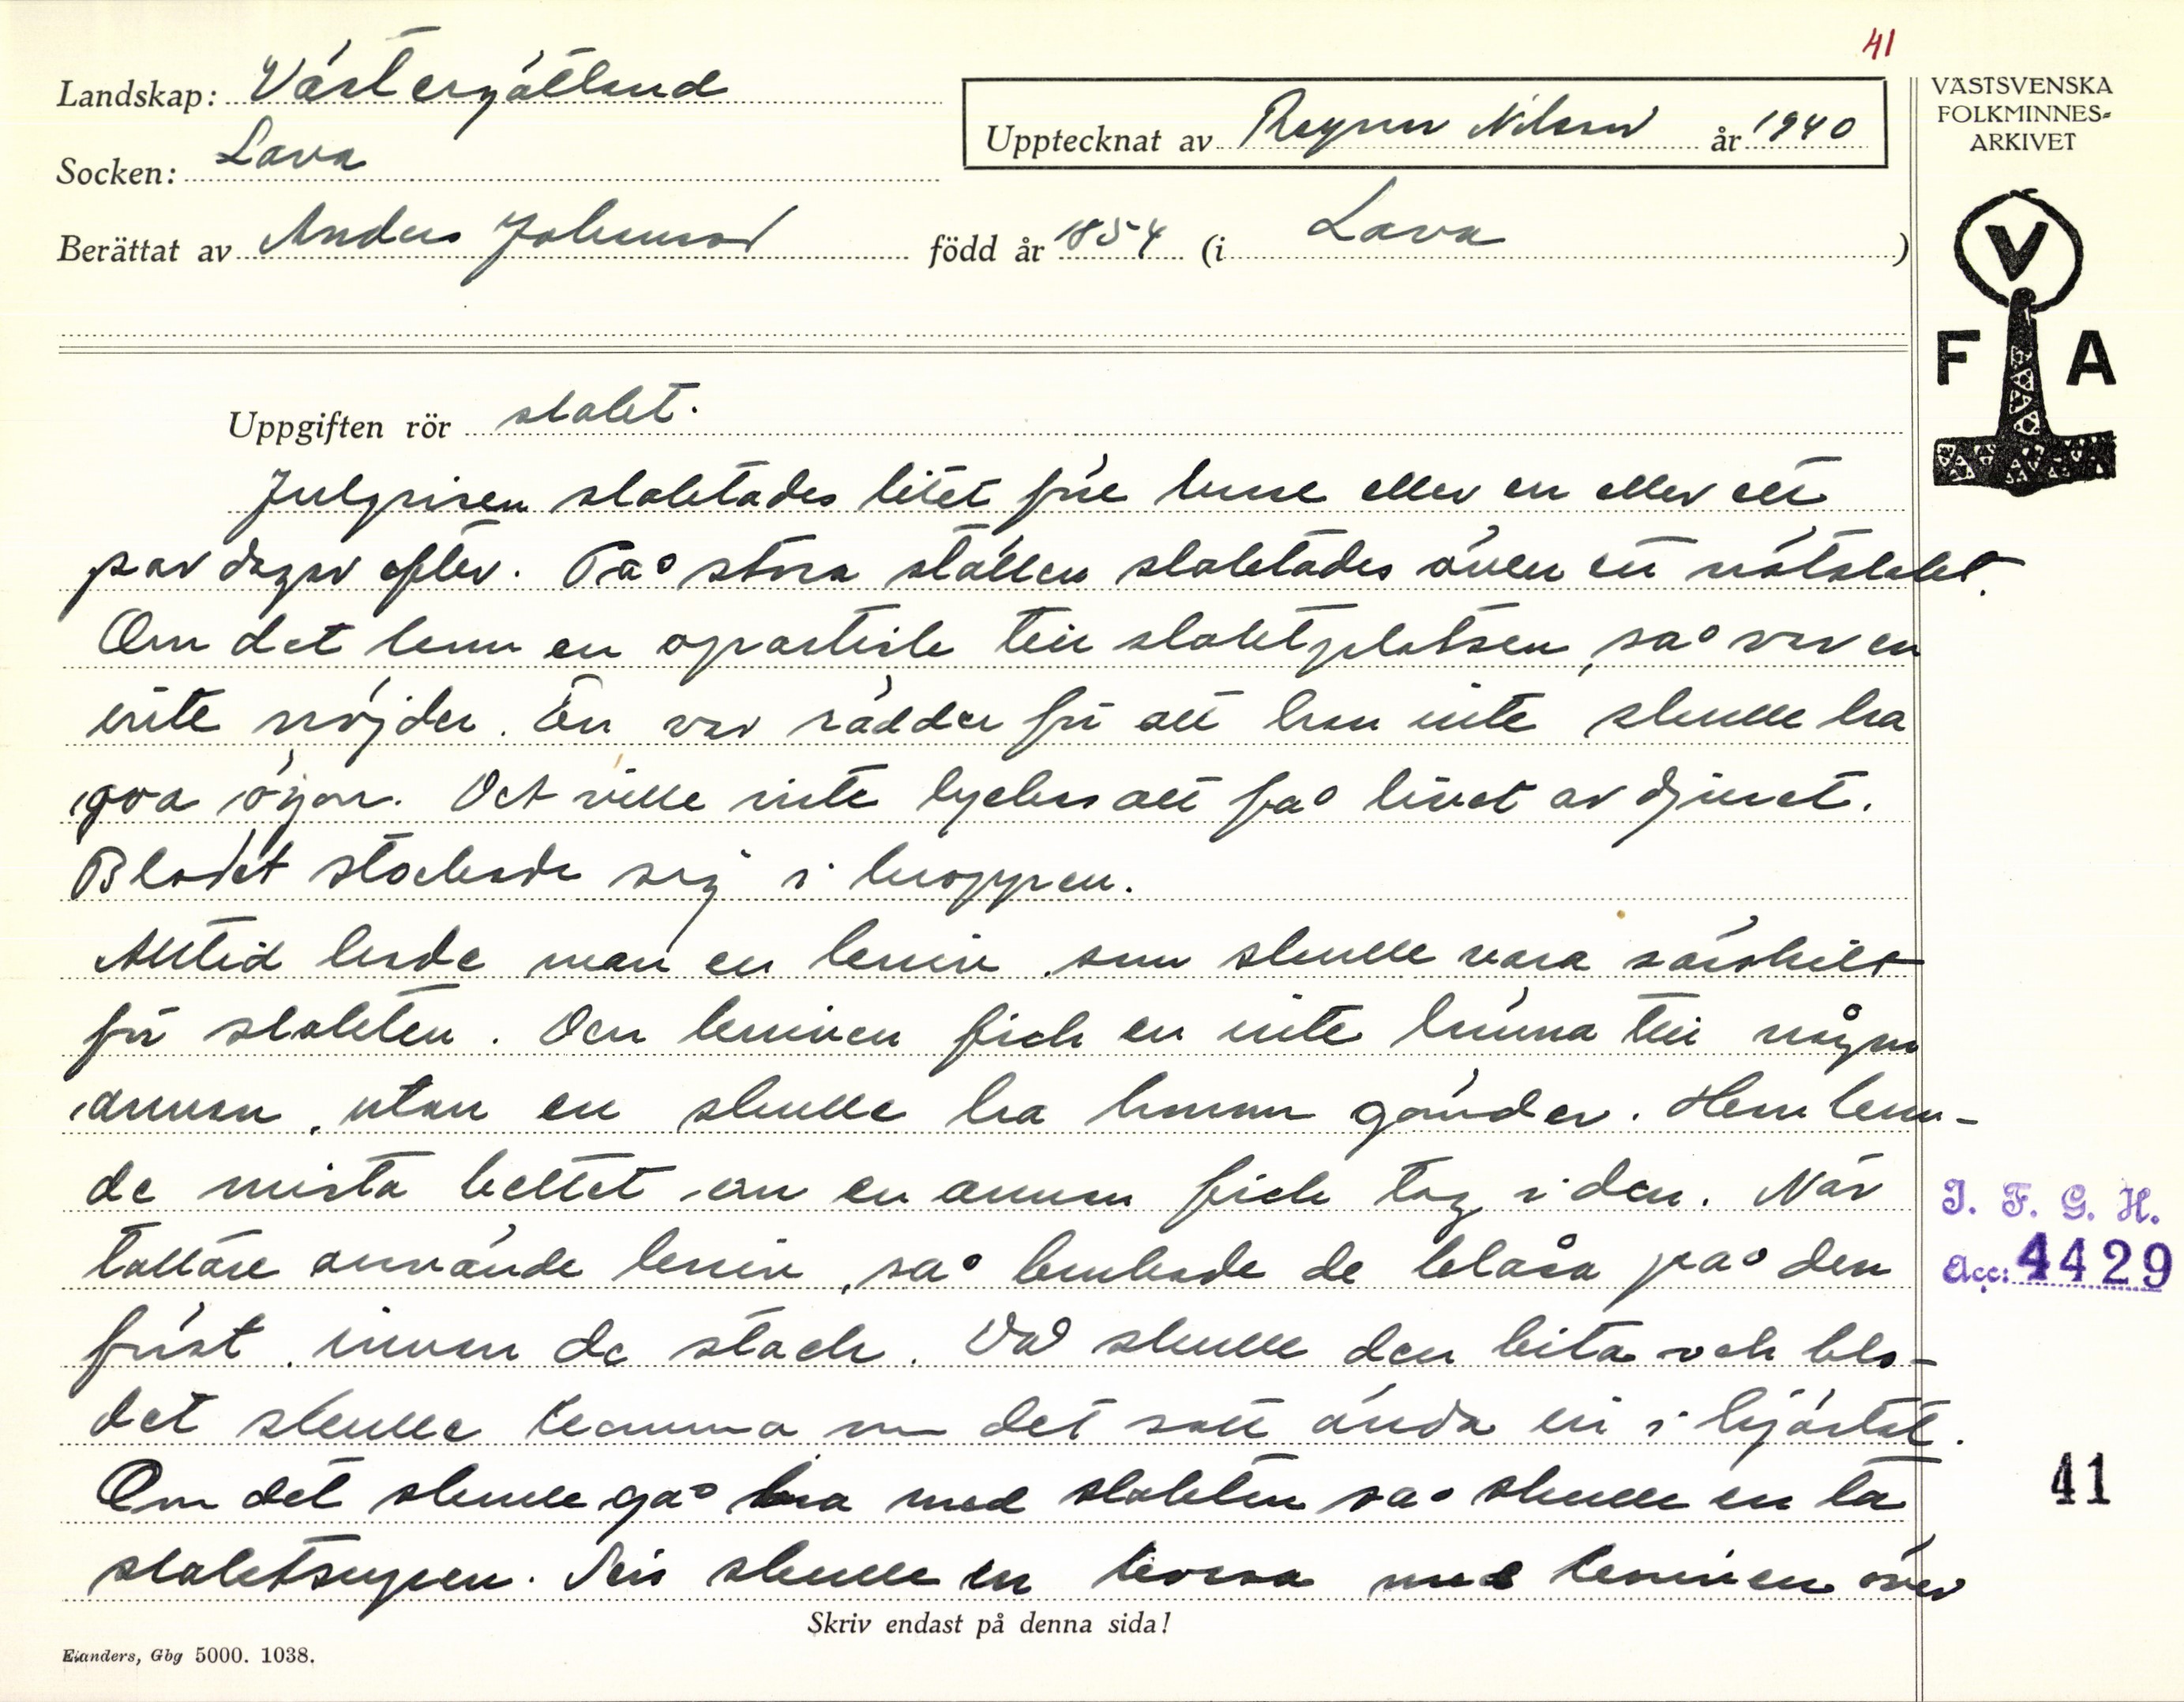 41
Landskap: Västergötland
Socken: Lava
Upptecknat av Ragnar Nilsson år 1940
Berättat av Anders Johansson född år 1854 (i Lava)
VÄSTSVENSKA
FOLKMINNES-
ARKIVET
V
F A
Uppgiften rör slakt.
Julgrisen slaktades litet före lusse eller en eller ett
par dagar efter. På stora ställen slaktades även ett nötslakt.
Om det kom en opartisk till slaktplatsen, så var en
inte nöjder. En var rädder för att han inte skulle ha
goa ögon. Det ville inte lyckas att få livet av djuret.
Blodet stockade sig i kroppen.
Alltid hade man en kniv som skulle vara särskilt
för slakten. Den kniven fick en inte lämna till någon
annan, utan en skulle ha honom gömder. Hem kun-
de mista bettet om en annan fick tag i den. När
tattare använde kniv, så brukade de blåsa på den
först, innan de stack. Då skulle den bita och blo-
det skulle komma om det satt ända in i hjärtat.
Om det skulle gå bra med slakten så skulle en ta
slaktsupen. Sen skulle en korsa med kniven över
Skriv endast på denna sida!
Elanders, Gbg 5000. 1038.
I. F. G. H.
Acc: 4429
41